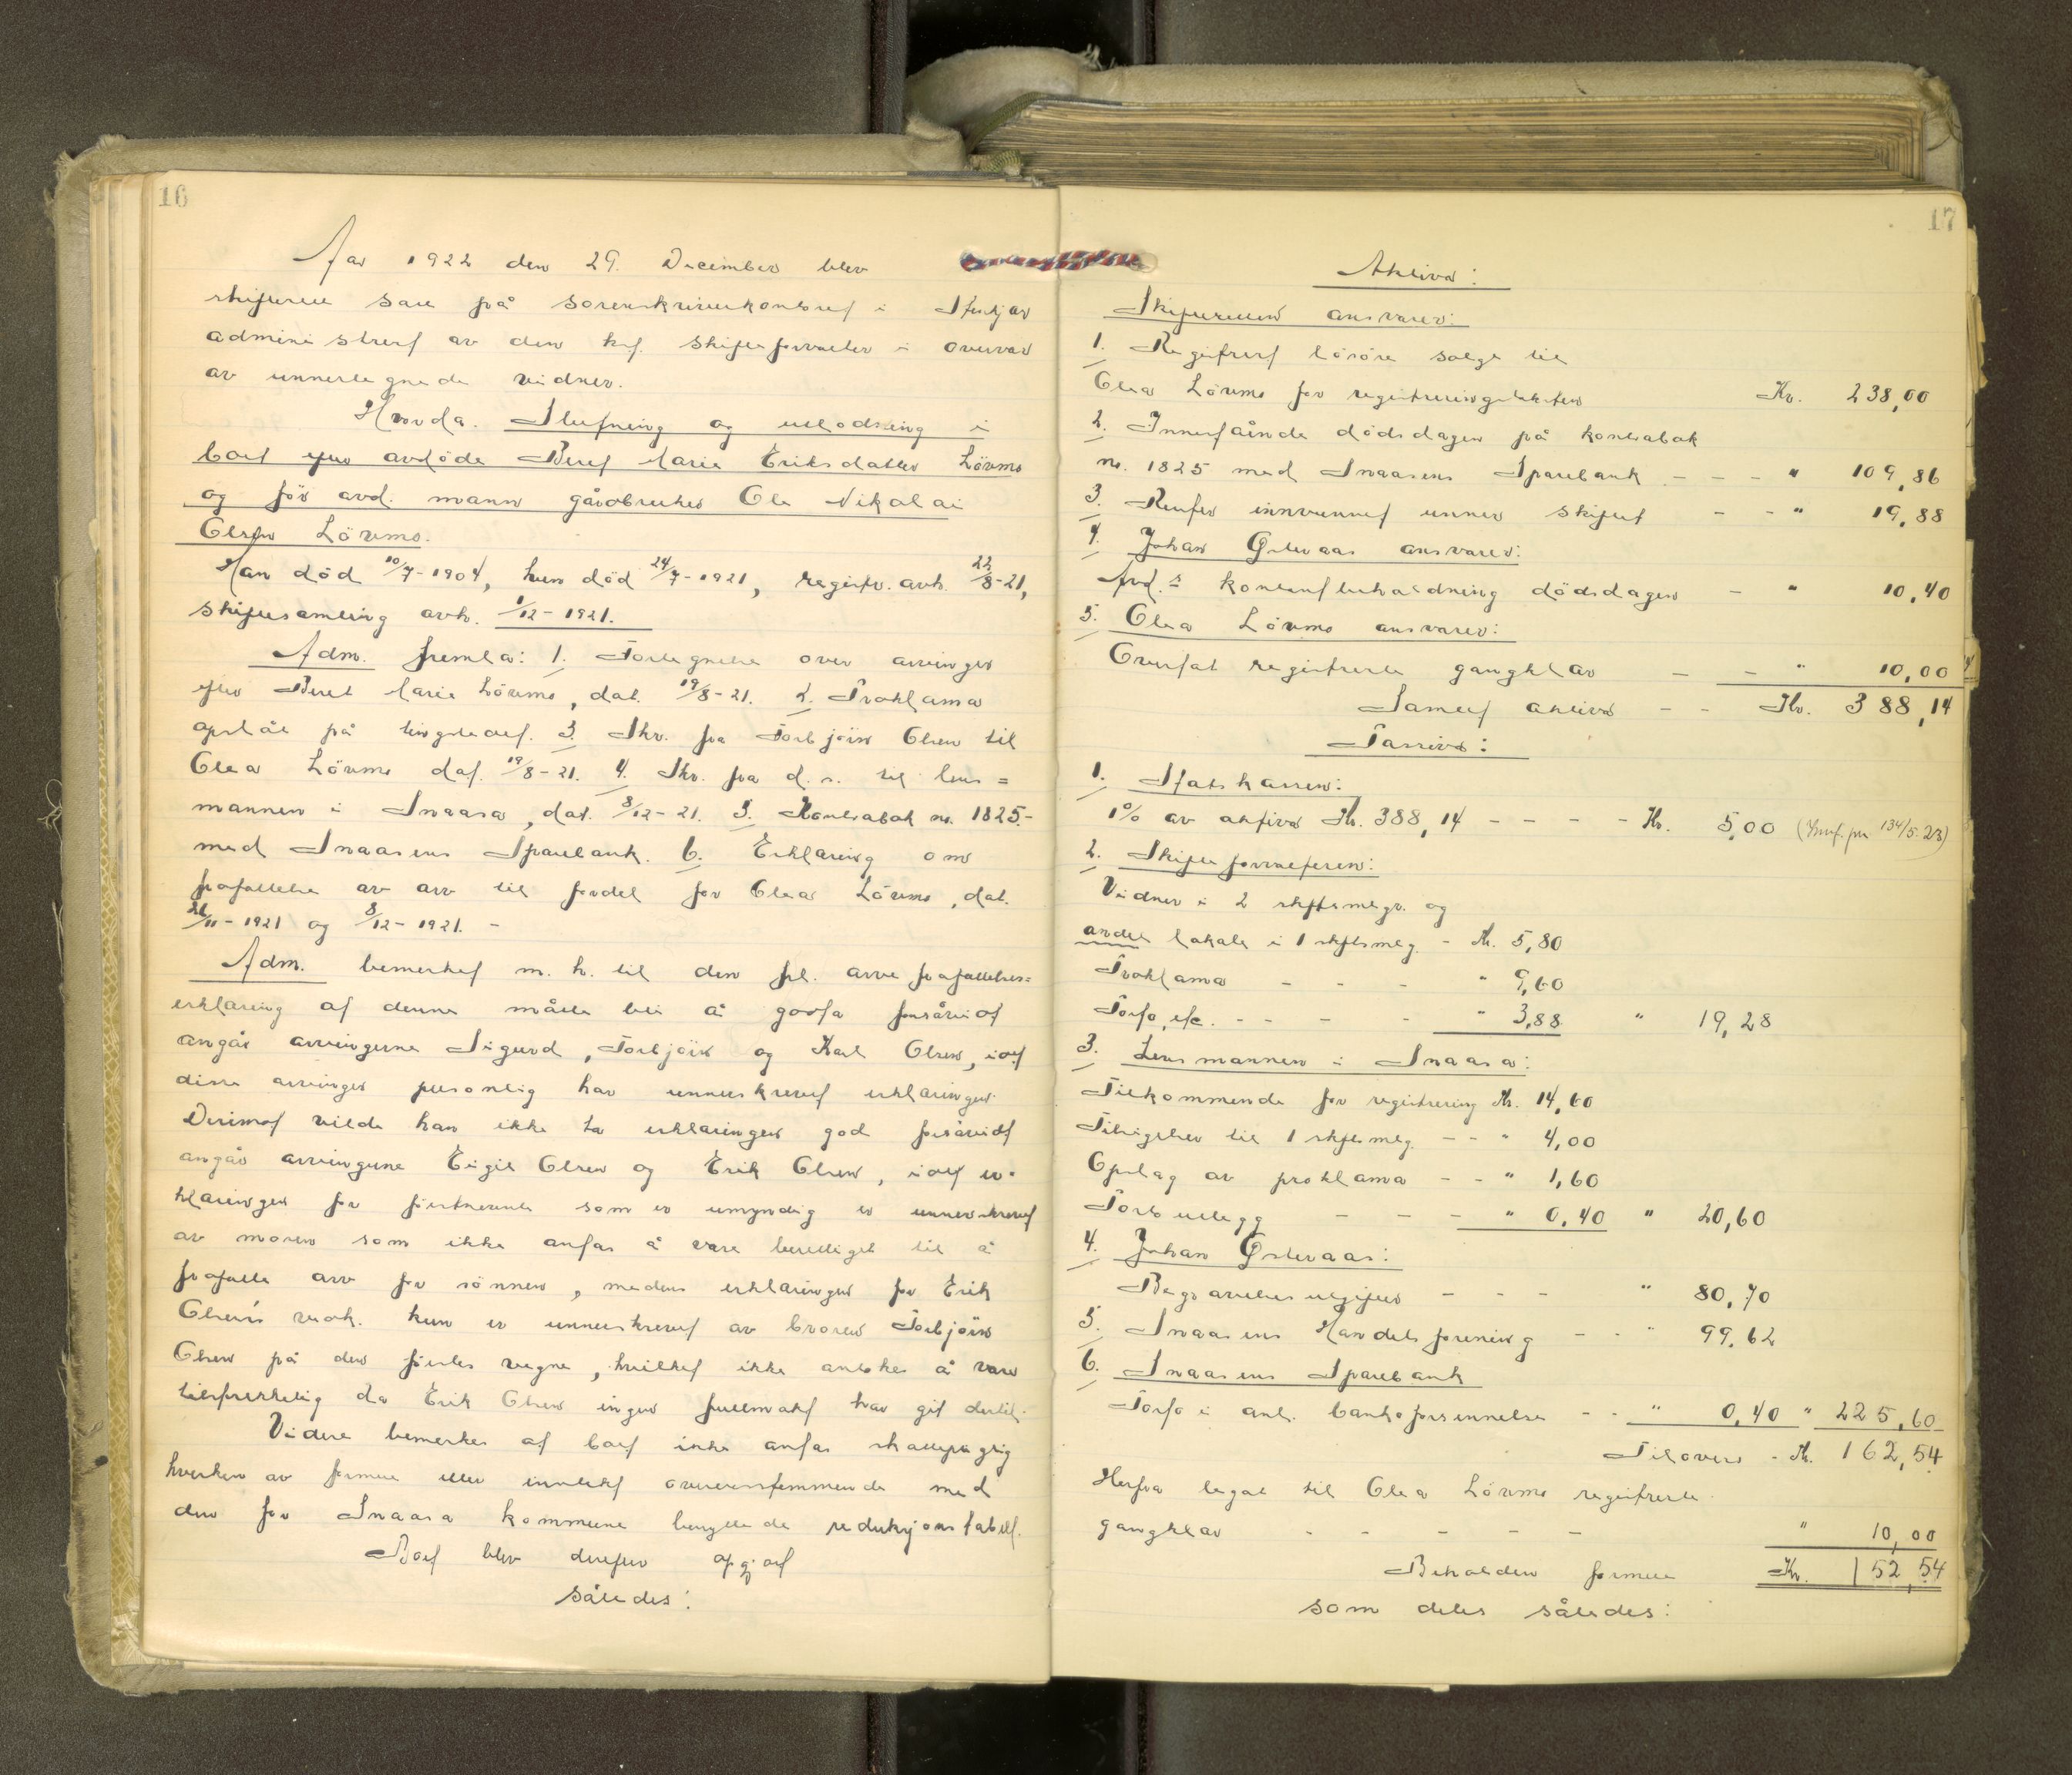 16
Aar 1922 den 29. December blev
skifterett satt på sorenskriverkontoret i Stenkjær
administrert av den kst. skifteforvalter i overvær
av unnertegnede vidner.
Hvorda. Slutning og utlodning i
boet efter avdöde Beret Marie Eriksdatter Lövmo
og før avd. mann gårdbruker Ole Nikolai
Olsen Lövmo.
Han död 10/7-1904, hun död 24/7-1921, registr. avh. 22/8-21,
skiftesamling avh. 1/12-1921.
Adm. fremla: 1. Fortegnelse over arvinger
efter Beret Marie Lövmo, dat. 19/8-21. 2. Proklama
opslåt på tingstedet. 3. Skr. fra Torbjörn Olsen til
Olea Lövmo dat. 19/8-21. 4. Skr. fra d. s. til lens=
mannen i Snaasa, dat. 8/12-21. 5. Kontrabok no. 1825.-
med Snaasens Sparebank. 6. Erklæring om
frafallelse av arv til fordel for Olea Lövmo, dat.
26/11-1921 og 8/12-1921. -
Adm. bemerket m. h. til den frl. arvefrafallelses=
erklæring at denne måtte bli å godta forsåvidt
angår arvingerne Sigurd, Torbjörn og Karl Olsen, idet
disse arvinger personlig har unnerskrevet erklæringen.
Derimot vilde han ikke ta erklæringen god forsåvidt
angår arvingerne Eigil Olsen og Erik Olsen, idet er-
klæringen for förstnevnte som er umyndig er unnerskrevet
av moren som ikke antas å være berettiget til å
frafalle arv for sönnen, medens erklæringen for Erik
Olsen's vedk. kun er unnerskrevet av broren Torbjörn
Olsen på den förstes vegne, hvilket ikke ansees å være
tilstrekkelig da Erik Olsen ingen fullmakt har git dertil.
Videre bemerkes at boet ikke antas skattepligtig
hverken av formue eller inntekt overensstemmende med
den for Snaasa kommune benyttede reduksjonstabell.
Boet blev derefter opgjort
således:
17
Aktiva:
Skifteretten ansvarer:
1. Registrert lösöre solgt til
Olea Lövmo for registreringstaksten Kr. 238,00
2. Innestående dödsdagen på kontrabok
no. 1825 med Snaasens Sparebank - - - " 109,86
3. Renter innvunnet unner skiftet - - " 19,88
4. Johan Östervaas ansvarer:
Avd.s kontantbeholdning dödsdagen - " 10,40
5. Olea Lövmo ansvarer:
Overtat registrerte gangklær - - " 10,00
Samlet aktiva - - Kr. 388,14
Passiva:
1. Statskassen:
1% av aktiva Kr. 388,14 - - - - Kr. 5,00 (Innf. pr 134/5-23)
2. Skifteforvalteren:
Vidner i 2 skftsmlgr. og
andel lokale i 1 skftsmlg. - Kr. 5,80
Proklama - - - " 9,60
Porto, etc. - - - - " 3,88 " 19,28
3. Lensmannen i Snaasa:
Tilkommende for registrering Kr. 14,60
Tilsigelser til 1 skftsmlg. - - " 4,00
Opslag av proklama - - " 1,60
Porto utlegg - - - " 0,40 " 20,60
4. Johan Östervaas:
Begravelsesutgifter - - - " 80,70
5. Snaasens Handelsforening - - " 99,62
6. Snaasens Sparebank
Porto i anl. bankoforsennelse - - " 0,40 " 225,60
Tilovers - Kr. 162,54
Herfra legat til Olea Lövmo registrerte
gangklær - - - - - " 10,00
Beholden formue Kr. 152,54
som deles således: